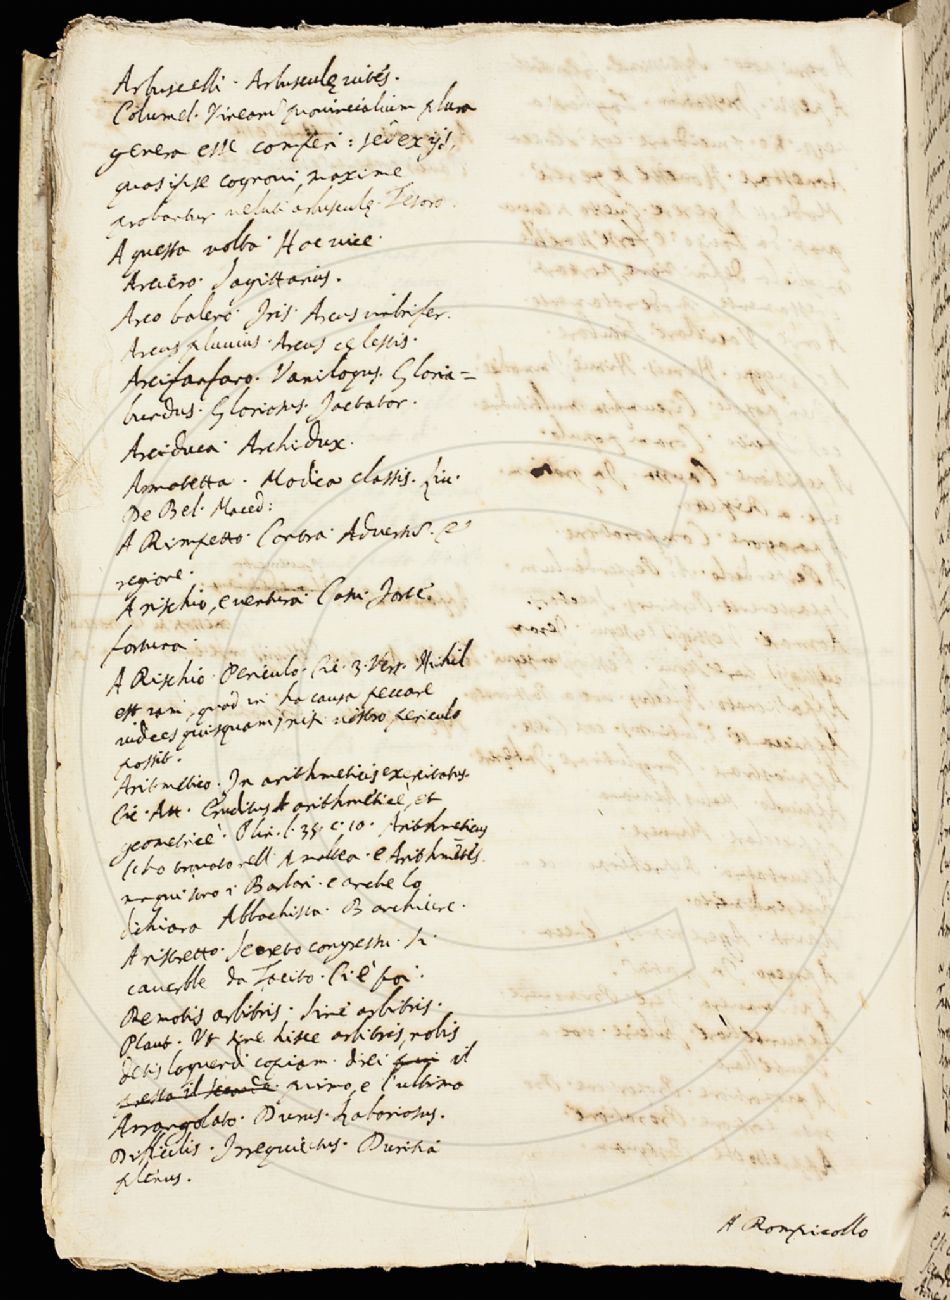 Arbuscelli. Arbusculę vites.
Columel. Vinearũ provincialium plura
genera esse comperi: sed ex ijs,
quas ipse cognovi, maxime
probantur veluti arbusculę. Tesoro.
A questa volta. Hac vice.
Arciero. Sagittarius.
Arco baleno. Iris. Arcus imbrifer.
Arcus pluvius. Arcus cęlestis.
Arcifanfaro. Vanilogus. Gloria=
bundus. Gloriosus. Jactator.
Arciduca. Archidux.
Armatetta. Modica classis. Liv.
De Bel. Maced:
A Rimpetto. Contra. Adversus. È
regione.
A rischio, e ventura. Casu. Forte
fortuna.
A Rischio. Periculo. Cic. 3. Verr. Nihil
est iam, quod in hac causa peccare
iudices quisquam, nisi nostro periculo
possit.
Aritmetico. In arithmeticis exercitatus.
Cic. Att. Eruditus arithmeticè, et
geometricè. Plin. l. 35. c. 10. Arithmeticus
si ho trovato nell' Amaltea. e Arithmetęs
Barbari. e anche lo
dichiara Abbachista. Banchiere.
A ristretto. Secreto congressu. Si
caverebbe da Tacito. Ci è poi.
Remotis arbitris. Sine arbitris.
Plaut. Ut sine hisce arbitris, nobis
detis loquendi copiam. direi il
primo, e l'ultimo
Arrangolato. Durus. Laboriosus.
Difficilis. Irrequietus. Duritia
plenus.
A Rompicollo